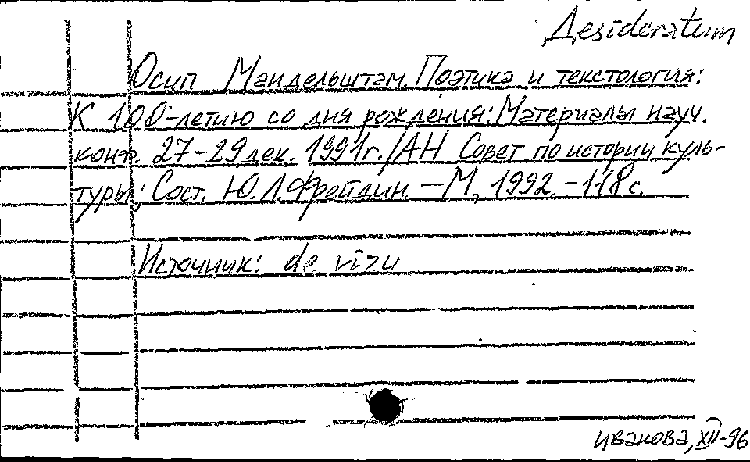 Desideratum
Осип Мандельштам. Поэтика и текстология:
К 100-летию со дня рождения: Материалы науч.
конф. 27-29 дек. 1991г. / АН Совет по истории куль-
туры; Сост. Ю.Л.Фрейдин. — М., 1992. — 118 с.
Источник: de visu
Иванова, XII-96